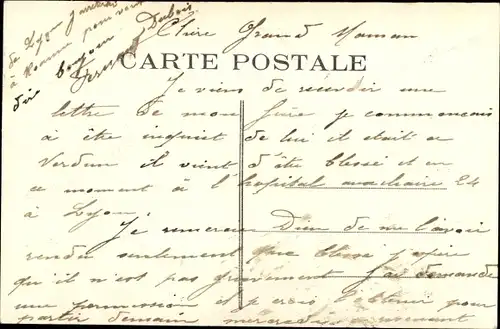 Chère Grand Maman
CARTE POSTALE
Je viens de recevoir une
lettre de mon frère je commencais
à être inquiet de lui il etait a
Verdun il vient d'être blessé et en
ce moment à l'hopital auxiliaire 24
à Lyon.
Je remercie Dieu de me l'avoir
rendu seulement que blessé j'espère
qu'il n'est pas gravement j'ai demandé
une permission et je crois l'obtenir pour
partir demain mercredi
de Lyon j'irai
à Roanne pour vous
dire bonjour
Fernand Dubois